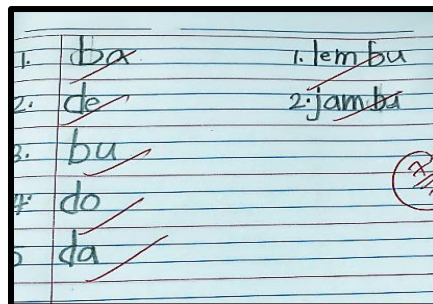 1. ba
2. de
3. bu
4. do
5 da
1. lembu
2. jambu